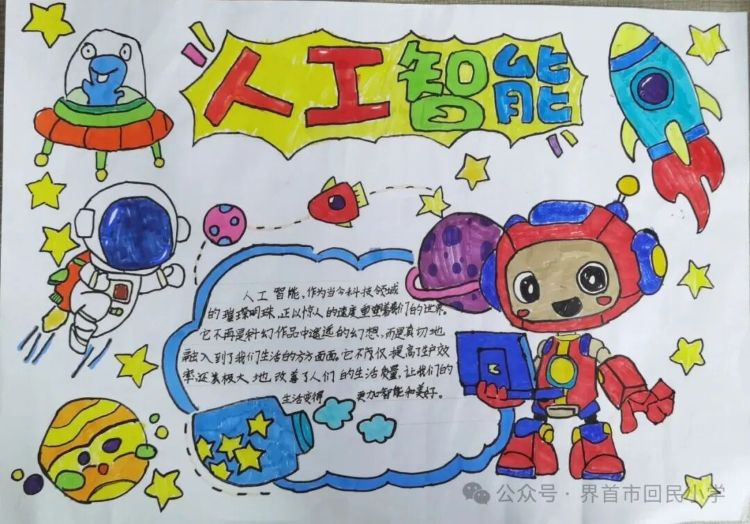 人工智能
人工智能，作为当今科技领域
的璀璨明珠，正以惊人的速度重塑着我们的世界。
它不再是科幻作品中遥远的幻想，而是真切地
融入到了我们生活的方方面面。它不仅提高了生产效
率还极大地改善了人们的生活质量，让我们的
生活变得 更加智能和美好。
公众号·界首市回民小学